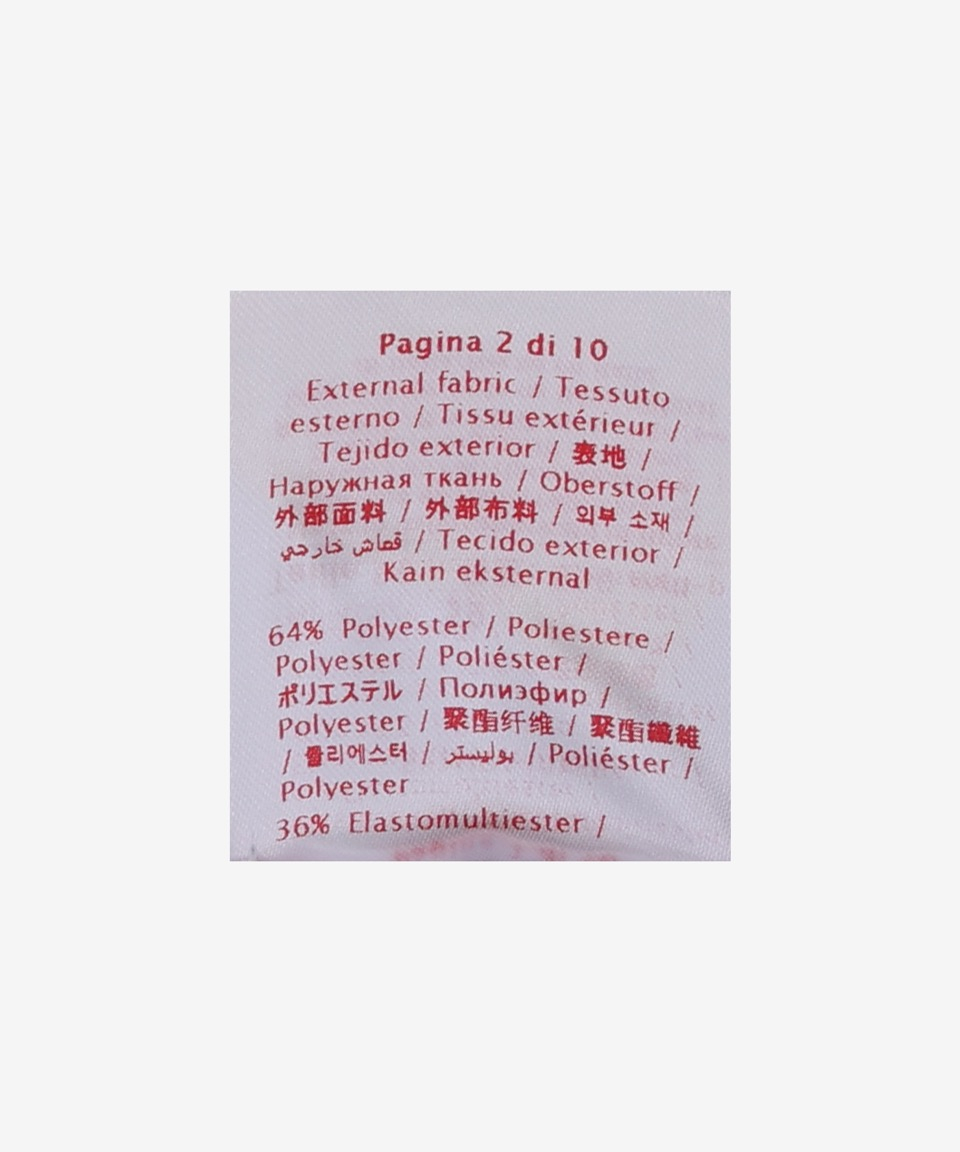 Pagina 2 di 10
External fabric / Tessuto
esterno / Tissu extérieur /
Tejido exterior / 表地 /
Наружная ткань / Oberstoff /
外部面料 / 外部布料 / 외부 소재 /
قماش خارجي / Tecido exterior /
Kain eksternal
64% Polyester / Poliestere /
Polyester / Poliéster /
ポリエステル / Полиэфир /
Polyester / 聚酯纤维 / 聚酯纖維
/ 폴리에스터 / بوليستر / Poliéster /
Polyester
36% Elastomultiester /